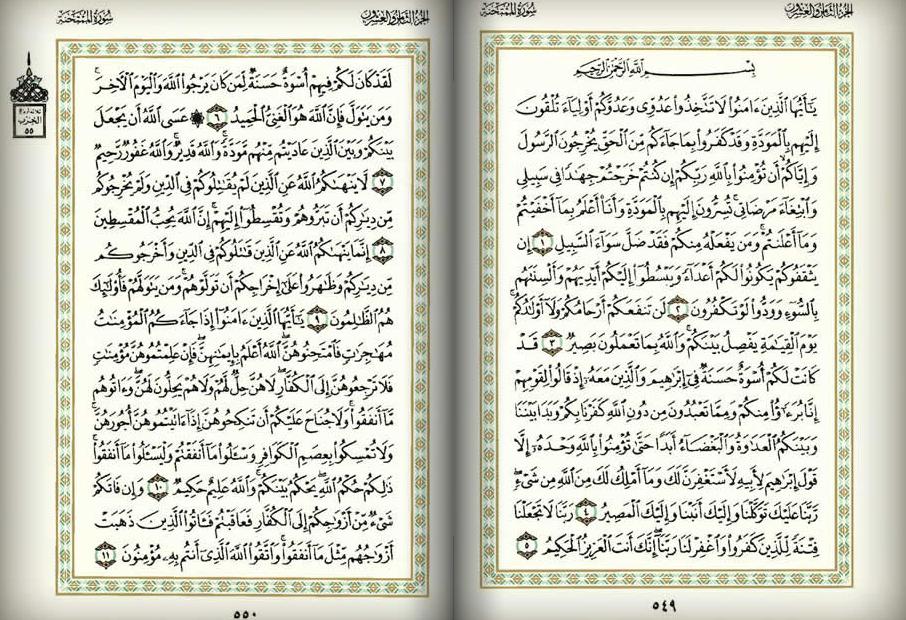 الجزء الثامن والعشرون
سورة الممتحنة
بِسْمِ ٱللَّهِ ٱلرَّحْمَٰنِ ٱلرَّحِيمِ
يَٰٓأَيُّهَا ٱلَّذِينَ ءَامَنُوا۟ لَا تَتَّخِذُوا۟ عَدُوِّى وَعَدُوَّكُمْ أَوْلِيَآءَ تُلْقُونَ
إِلَيْهِم بِٱلْمَوَدَّةِ وَقَدْ كَفَرُوا۟ بِمَا جَآءَكُم مِّنَ ٱلْحَقِّ يُخْرِجُونَ ٱلرَّسُولَ
وَإِيَّاكُمْ أَن تُؤْمِنُوا۟ بِٱللَّهِ رَبِّكُمْ إِن كُنتُمْ خَرَجْتُمْ جِهَٰدًا فِى سَبِيلِى
وَٱبْتِغَآءَ مَرْضَاتِى تُسِرُّونَ إِلَيْهِم بِٱلْمَوَدَّةِ وَأَنَا۠ أَعْلَمُ بِمَآ أَخْفَيْتُمْ
وَمَآ أَعْلَنتُمْ وَمَن يَفْعَلْهُ مِنكُمْ فَقَدْ ضَلَّ سَوَآءَ ٱلسَّبِيلِ ١ إِن
يَثْقَفُوكُمْ يَكُونُوا۟ لَكُمْ أَعْدَآءً وَيَبْسُطُوٓا۟ إِلَيْكُمْ أَيْدِيَهُمْ وَأَلْسِنَتَهُم
بِٱلسُّوٓءِ وَوَدُّوا۟ لَوْ تَكْفُرُونَ ٢ لَن تَنفَعَكُمْ أَرْحَامُكُمْ وَلَآ أَوْلَٰدُكُمْ
يَوْمَ ٱلْقِيَٰمَةِ يَفْصِلُ بَيْنَكُمْ وَٱللَّهُ بِمَا تَعْمَلُونَ بَصِيرٌ ٣ قَدْ
كَانَتْ لَكُمْ أُسْوَةٌ حَسَنَةٌ فِىٓ إِبْرَٰهِيمَ وَٱلَّذِينَ مَعَهُۥٓ إِذْ قَالُوا۟ لِقَوْمِهِمْ
إِنَّا بُرَءَٰٓؤُا۟ مِنكُمْ وَمِمَّا تَعْبُدُونَ مِن دُونِ ٱللَّهِ كَفَرْنَا بِكُمْ وَبَدَا بَيْنَنَا
وَبَيْنَكُمُ ٱلْعَدَٰوَةُ وَٱلْبَغْضَآءُ أَبَدًا حَتَّىٰ تُؤْمِنُوا۟ بِٱللَّهِ وَحْدَهُۥٓ إِلَّا
قَوْلَ إِبْرَٰهِيمَ لِأَبِيهِ لَأَسْتَغْفِرَنَّ لَكَ وَمَآ أَمْلِكُ لَكَ مِنَ ٱللَّهِ مِن شَىْءٍ
رَّبَّنَا عَلَيْكَ تَوَكَّلْنَا وَإِلَيْكَ أَنَبْنَا وَإِلَيْكَ ٱلْمَصِيرُ ٤ رَبَّنَا لَا تَجْعَلْنَا
فِتْنَةً لِّلَّذِينَ كَفَرُوا۟ وَٱغْفِرْ لَنَا رَبَّنَآ إِنَّكَ أَنتَ ٱلْعَزِيزُ ٱلْحَكِيمُ ٥
٥٤٩
الجزء الثامن والعشرون
سورة الممتحنة
لَقَدْ كَانَ لَكُمْ فِيهِمْ أُسْوَةٌ حَسَنَةٌ لِّمَن كَانَ يَرْجُوا۟ ٱللَّهَ وَٱلْيَوْمَ ٱلْءَاخِرَ
وَمَن يَتَوَلَّ فَإِنَّ ٱللَّهَ هُوَ ٱلْغَنِىُّ ٱلْحَمِيدُ ٦ ۞ عَسَى ٱللَّهُ أَن يَجْعَلَ
بَيْنَكُمْ وَبَيْنَ ٱلَّذِينَ عَادَيْتُم مِّنْهُم مَّوَدَّةً وَٱللَّهُ قَدِيرٌ وَٱللَّهُ غَفُورٌ رَّحِيمٌ
٧ لَّا يَنْهَىٰكُمُ ٱللَّهُ عَنِ ٱلَّذِينَ لَمْ يُقَٰتِلُوكُمْ فِى ٱلدِّينِ وَلَمْ يُخْرِجُوكُم
مِّن دِيَٰرِكُمْ أَن تَبَرُّوهُمْ وَتُقْسِطُوٓا۟ إِلَيْهِمْ إِنَّ ٱللَّهَ يُحِبُّ ٱلْمُقْسِطِينَ
٨ إِنَّمَا يَنْهَىٰكُمُ ٱللَّهُ عَنِ ٱلَّذِينَ قَٰتَلُوكُمْ فِى ٱلدِّينِ وَأَخْرَجُوكُم
مِّن دِيَٰرِكُمْ وَظَٰهَرُوا۟ عَلَىٰٓ إِخْرَاجِكُمْ أَن تَوَلَّوْهُمْ وَمَن يَتَوَلَّهُمْ فَأُو۟لَٰٓئِكَ
هُمُ ٱلظَّٰلِمُونَ ٩ يَٰٓأَيُّهَا ٱلَّذِينَ ءَامَنُوٓا۟ إِذَا جَآءَكُمُ ٱلْمُؤْمِنَٰتُ
مُهَٰجِرَٰتٍ فَٱمْتَحِنُوهُنَّ ٱللَّهُ أَعْلَمُ بِإِيمَٰنِهِنَّ فَإِنْ عَلِمْتُمُوهُنَّ مُؤْمِنَٰتٍ
فَلَا تَرْجِعُوهُنَّ إِلَى ٱلْكُفَّارِ لَا هُنَّ حِلٌّ لَّهُمْ وَلَا هُمْ يَحِلُّونَ لَهُنَّ وَءَاتُوهُم
مَّآ أَنفَقُوا۟ وَلَا جُنَاحَ عَلَيْكُمْ أَن تَنكِحُوهُنَّ إِذَآ ءَاتَيْتُمُوهُنَّ أُجُورَهُنَّ
وَلَا تُمْسِكُوا۟ بِعِصَمِ ٱلْكَوَافِرِ وَسْـَٔلُوا۟ مَآ أَنفَقْتُمْ وَلْيَسْـَٔلُوا۟ مَآ أَنفَقُوا۟
ذَٰلِكُمْ حُكْمُ ٱللَّهِ يَحْكُمُ بَيْنَكُمْ وَٱللَّهُ عَلِيمٌ حَكِيمٌ ١٠ وَإِن فَاتَكُمْ
شَىْءٌ مِّنْ أَزْوَٰجِكُمْ إِلَى ٱلْكُفَّارِ فَعَاقَبْتُمْ فَـَٔاتُوا۟ ٱلَّذِينَ ذَهَبَتْ
أَزْوَٰجُهُم مِّثْلَ مَآ أَنفَقُوا۟ وَٱتَّقُوا۟ ٱللَّهَ ٱلَّذِىٓ أَنتُم بِهِۦ مُؤْمِنُونَ ١١
الحزب
٥٥
٥٥٠